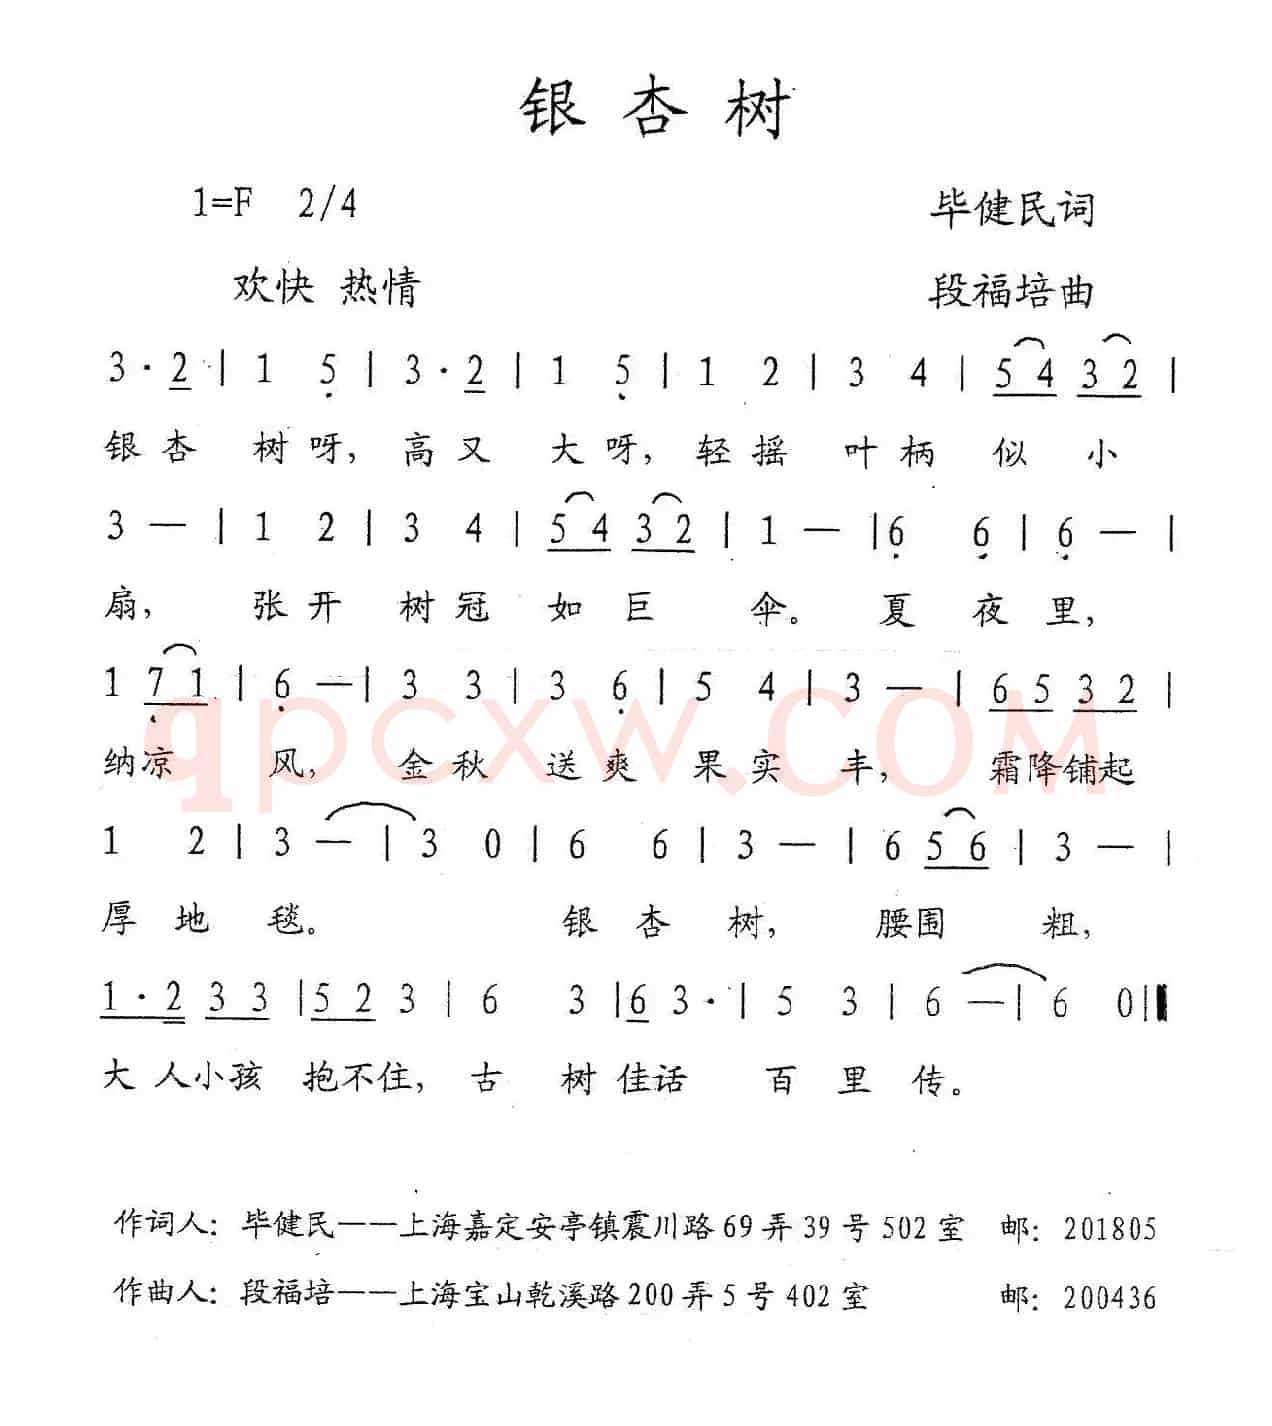 银杏树
1=F 2/4 毕健民词
欢快 热情 段福培曲
3·2 | 1 5 | 3·2 | 1 5 | 1 2 | 3 4 | 5 4 3 2 |
银杏 树呀, 高又 大呀, 轻摇 叶柄 似 小
3 — | 1 2 | 3 4 | 5 4 3 2 | 1 — | 6 6 | 6 — |
扇, 张开 树冠 如巨 伞。 夏 夜 里,
1 7 1 | 6 — | 3 3 | 3 6 | 5 4 | 3 — | 6 5 3 2 |
纳凉 风, 金秋 送爽 果实 丰, 霜降铺起
qpcxw.COM
1 2 | 3 — | 3 0 | 6 6 | 3 — | 6 5 6 | 3 — |
厚地 毯。 银杏 树, 腰围 粗,
1·2 3 3 | 5 2 3 | 6 3 | 6 3· | 5 3 | 6 — | 6 0 ||
大人小孩 抱不住, 古 树佳话 百里 传。
作词人: 毕健民——上海嘉定安亭镇震川路69弄39号502室 邮: 201805
作曲人: 段福培——上海宝山乾溪路200弄5号402室 邮: 200436